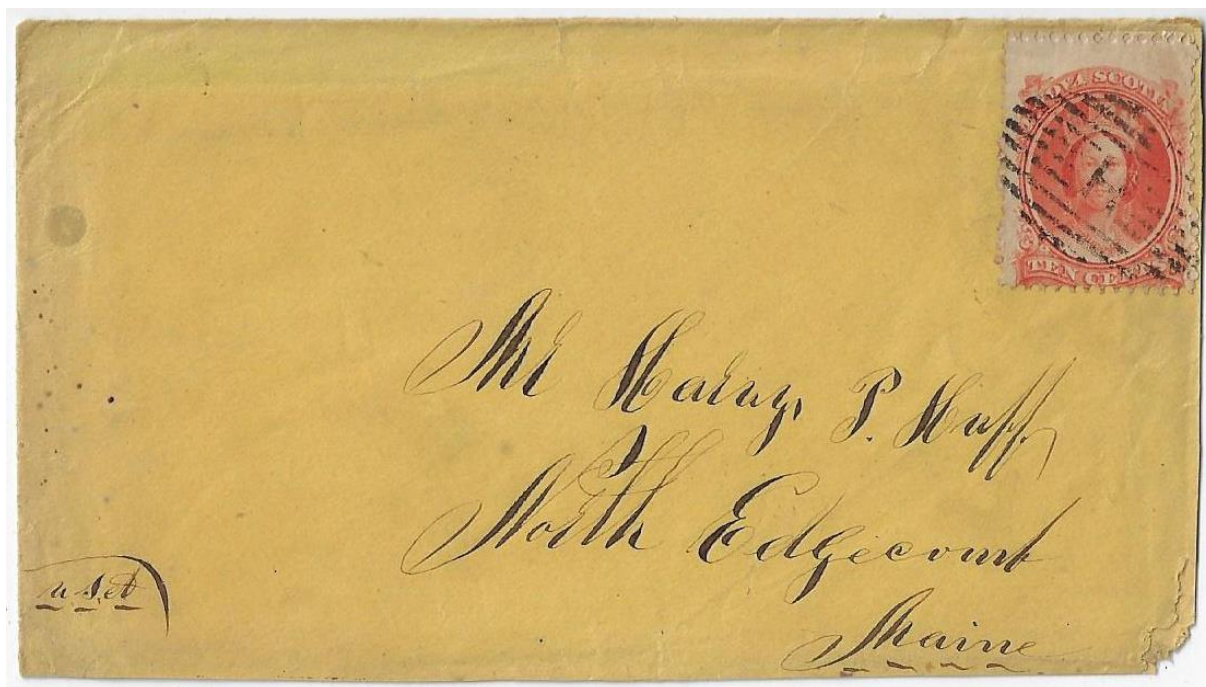 NOVA SCOTIA
TEN CENTS
Mr P. Huff
North Edgecomb
Maine
u.s.A